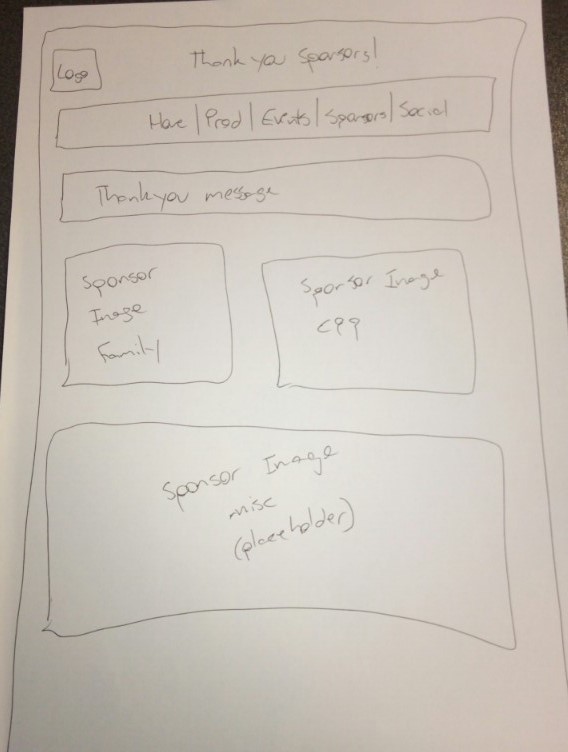 Thank you Sponsors!
Logo
Home | Prod | Events | Sponsors | Social
Thank you message
Sponsor
Image
Family
Sponsor Image
CPP
Sponsor Image
misc
(placeholder)